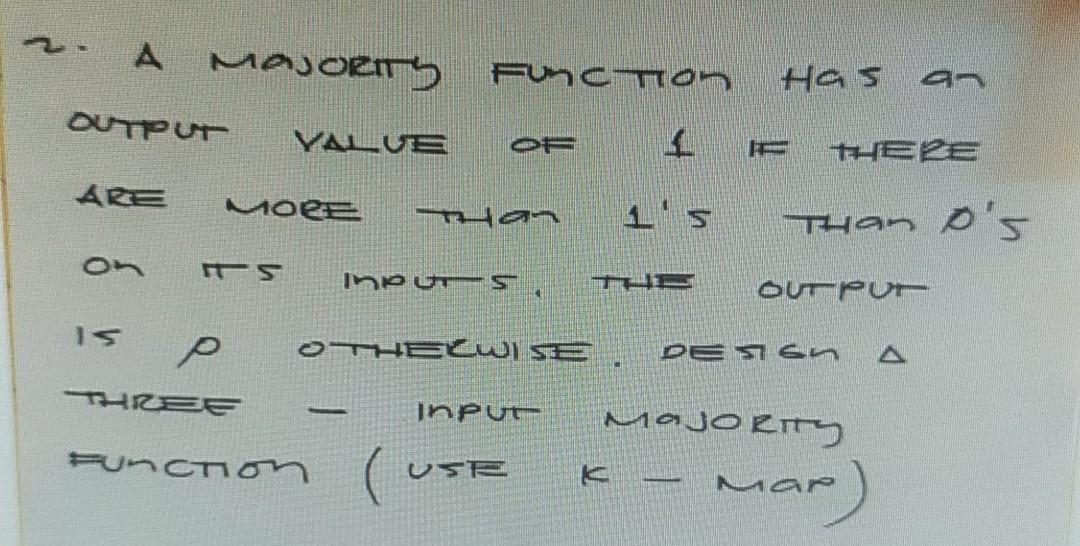 2. A MAJORITY FUNCTION HAS an
OUTPUT VALUE OF 1 IF THERE
ARE MORE THAN 1's THAN 0's
On ITS INPUTS. THE OUTPUT
IS 0 OTHERWISE. DESIGN A
THREE - INPUT MAJORITY
FUNCTION (USE K - MAP)